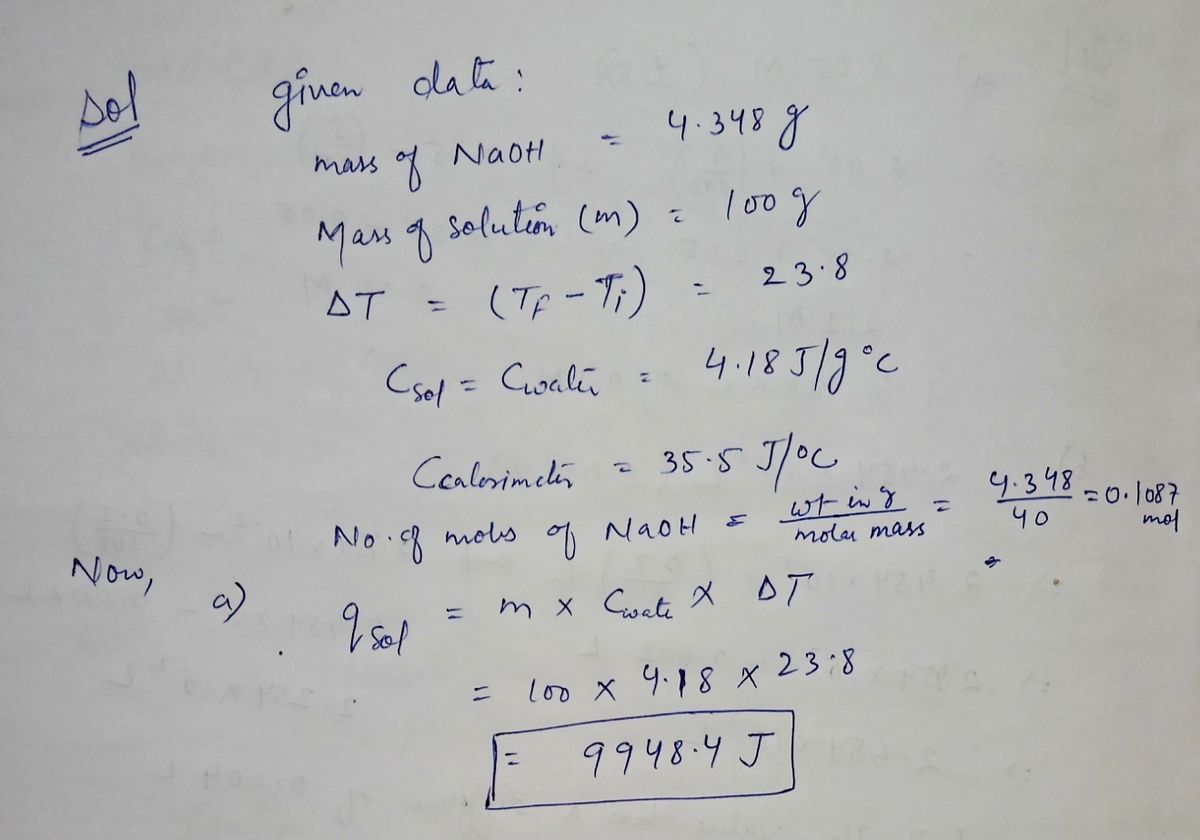 Sol given data :
mass of NaOH = 4.348 g
Mass of solution (m) = 100 g
ΔT = (TF - Ti) = 23.8
Csol = Cwater = 4.18 J/g °C
Ccalorimeter = 35.5 J/°C
No. of moles of NaOH = wt in g / molar mass = 4.348 / 40 = 0.1087 mol
Now,
a) qsol = m x Cwate x ΔT
= 100 x 4.18 x 23.8
= 9948.4 J